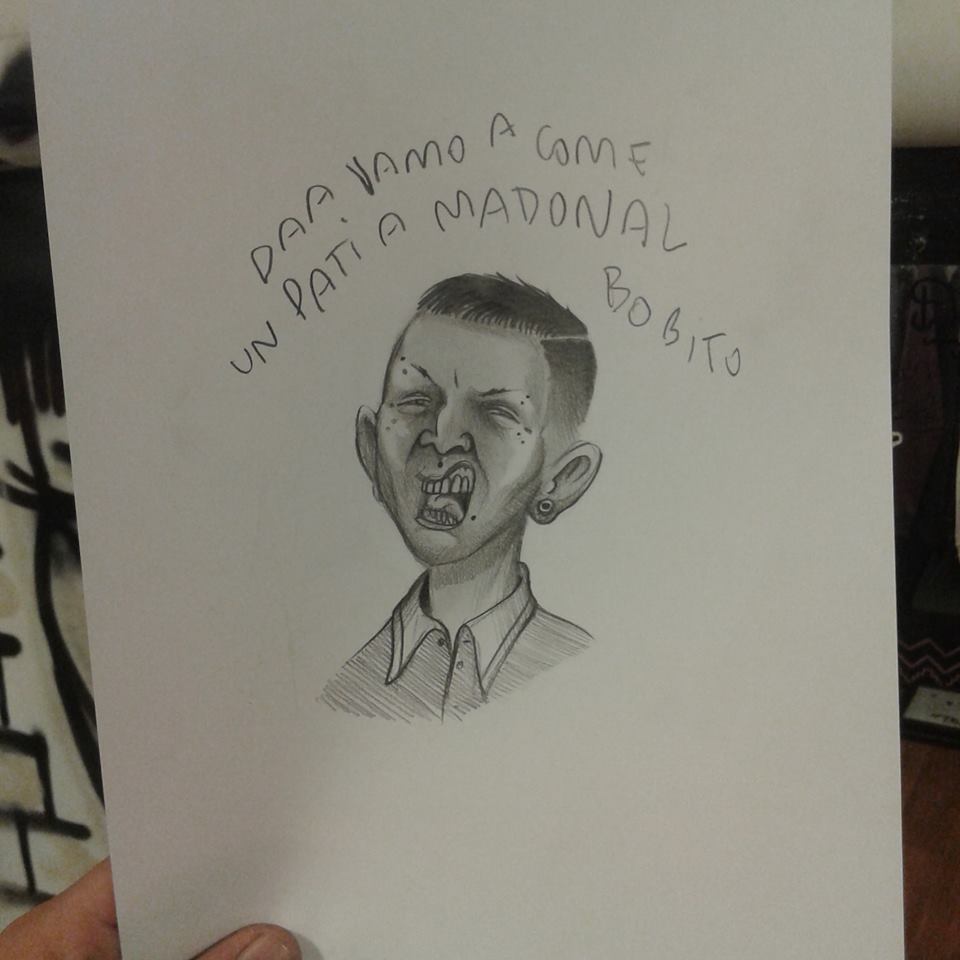 DAA. VAMO A COME
UN PATI A MADONAL
BOBITO